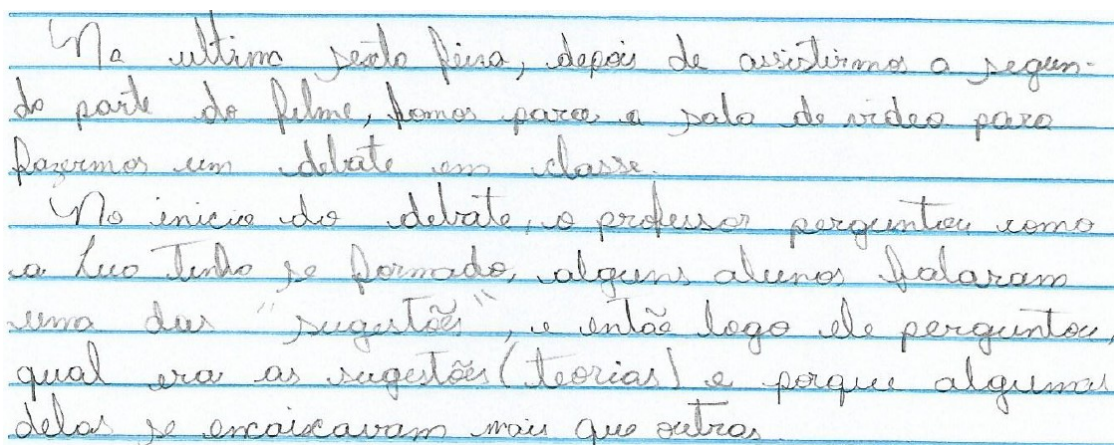 Na ultima sexta feira, depois de assistirmos a segun-
da parte do filme, fomos para a sala de video para
fazermos um debate em classe.
No inicio do debate, o professor perguntou como
a Lua tinha se formado, alguns alunos falaram
uma das "sugestões", e então logo ele perguntou,
qual era as sugestões (teorias) e porque algumas
delas se encaixavam mais que outras.